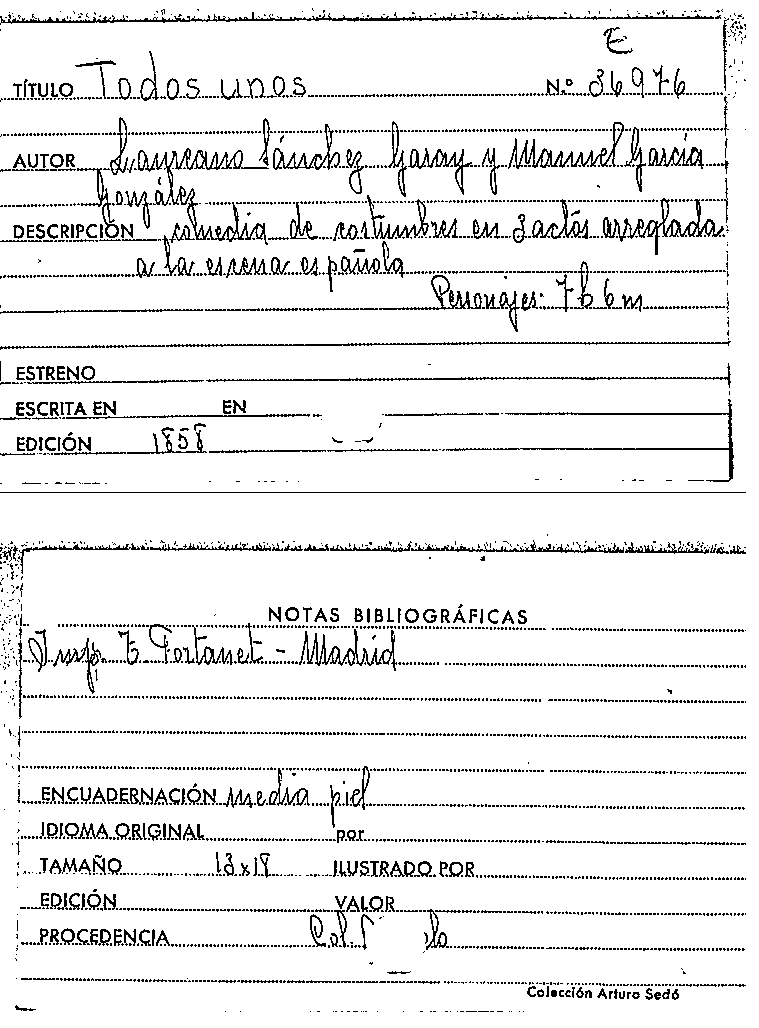 E
TÍTULO Todos unos N.º 36976
AUTOR Laureano Sánchez Garay y Manuel García
González
DESCRIPCIÓN comedia de costumbres en 3 actos arreglada
a la escena española
Personajes: 7h 6m
ESTRENO
ESCRITA EN EN
EDICIÓN 1858
NOTAS BIBLIOGRÁFICAS
Imp. T Fortanet - Madrid
ENCUADERNACIÓN media piel
IDIOMA ORIGINAL por
TAMAÑO 13x19 ILUSTRADO POR
EDICIÓN VALOR
PROCEDENCIA Col.
Colección Arturo Sedó